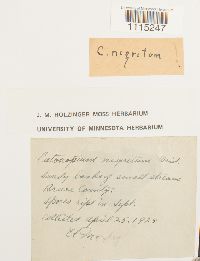 1115247
C. nigritum
J. M. HOLZINGER MOSS HERBARIUM
UNIVERSITY OF MINNESOTA HERBARIUM
Catoscopium nigritum Brid.
sandy banks of small stream
County.
spores ripe in Sept.
collected april 25. 1925